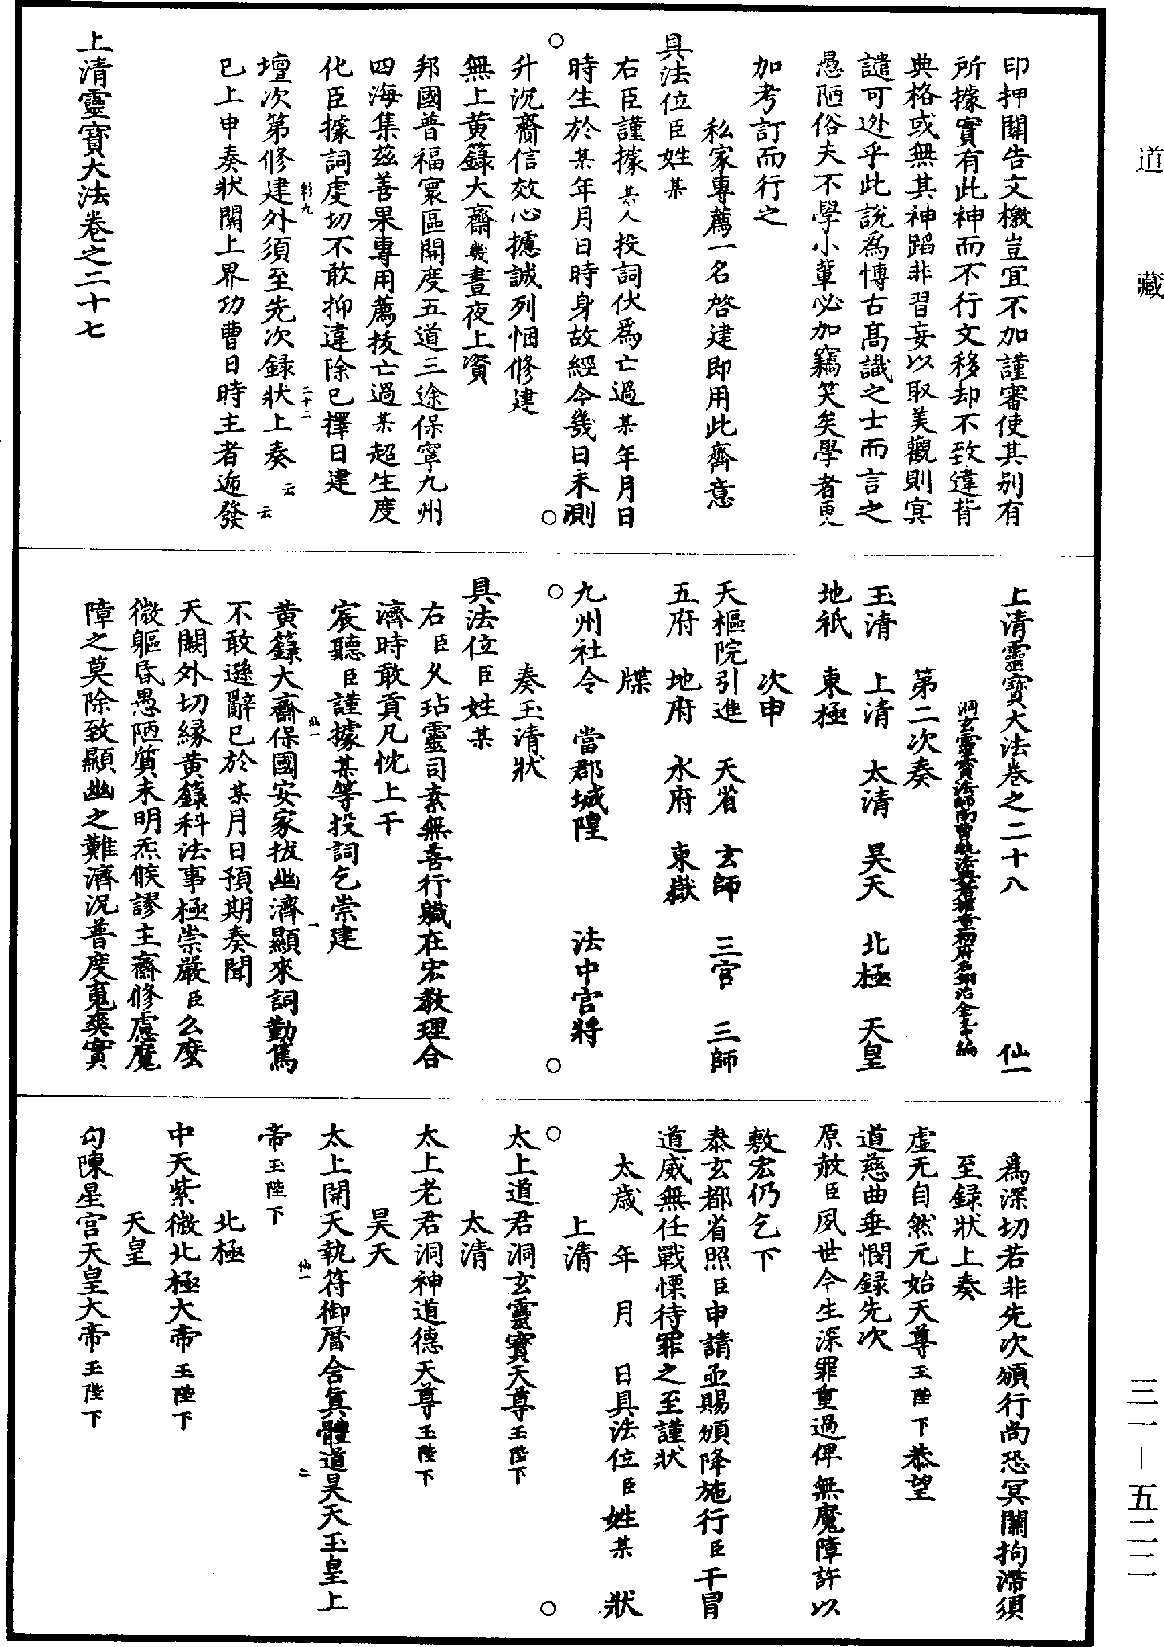 道藏
三一—五二二
印押關告文檄豈宜不加謹審使其別有
所據實有此神而不行文移却不致違背
典格或無其神蹈非習妄以取美觀則冥
譴可逃乎此說為博古高識之士而言之
愚陋俗夫不學小輩必加竊笑矣學者更
加考訂而行之
私家專薦一名啓建即用此齋意
具法位臣姓某
右臣謹據某人投詞伏為亡過某年月日
時生於某年月日時身故經今幾日未測
升沉齋信效心攄誠列悃修建
無上黃籙大齋幾晝夜上資
邦國普福寰區開度五道三途保寧九州
四海集茲善果專用薦拔亡過某超生度
化臣據詞虔切不敢抑違除已擇日建
壇次第修建外須至先次錄狀上奏云云
彰九 二十二
已上申奏狀關上界功曹日時主者遞發
上清靈寶大法卷之二十七
上清靈寶大法卷之二十八 仙一
洞玄靈寶法師南曹執法典者權童初府右翊治金允中編
第二次奏
玉清 上清 太清 昊天 北極 天皇
地祇 東極
次申
天樞院引進 天省 玄師 三官 三師
五府 地府 水府 東嶽
牒
九州社令 當郡城隍 法中官將
奏玉清狀
具法位臣姓某
右臣久玷靈司素無善行職在宏教理合
濟時敢貢凡忱上干
宸聽臣謹據某等投詞乞崇建
仙一 一
黃籙大齋保國安家拔幽濟顯來詞勤篤
不敢遜辭已於某月日預期奏聞
天闕外切緣黃籙科法事極崇嚴臣么麼
微軀昏愚陋質未明炁候謬主齋修慮魔
障之莫除致顯幽之難濟況普度冤爽實
為深切若非先次頒行尚恐冥關拘滯須
至錄狀上奏
虛无自然元始天尊玉陛下恭望
道慈曲垂憫錄先次
原赦臣夙世今生深罪重過俾無魔障許以
敷宏仍乞下
泰玄都省照臣申請亟賜頒降施行臣干冒
道威無任戰慄待罪之至謹狀
太歲 年 月 日具法位臣姓某 狀
上清
太上道君洞玄靈寶天尊玉陛下
太清
太上老君洞神道德天尊玉陛下
昊天
太上開天執符御曆含眞體道昊天玉皇上
仙一 二
帝玉陛下
北極
中天紫微北極大帝玉陛下
天皇
勾陳星宮天皇大帝玉陛下